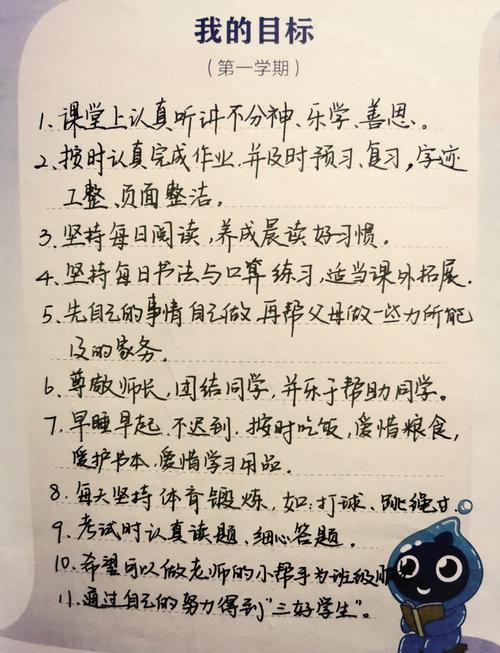 我的目标
（第一学期）
1、课堂上认真听讲不分神、乐学、善思。
2、按时认真完成作业,并及时预习、复习,字迹
工整、页面整洁。
3、坚持每日阅读,养成晨读好习惯。
4、坚持每日书法与口算练习,适当课外拓展.
5、先自己的事情自己做,再帮父母做一些力所能
及的家务。
6、尊敬师长,团结同学,并乐于帮助同学。
7、早睡早起,不迟到.按时吃饭,爱惜粮食,
爱护书本,爱惜学习用品.
8、每天坚持体育锻炼,如:打球、跳绳
9、考试时认真读题、细心答题.
10、希望可以做老师的小帮手为班级服
11、通过自己的努力得到"三好学生"。